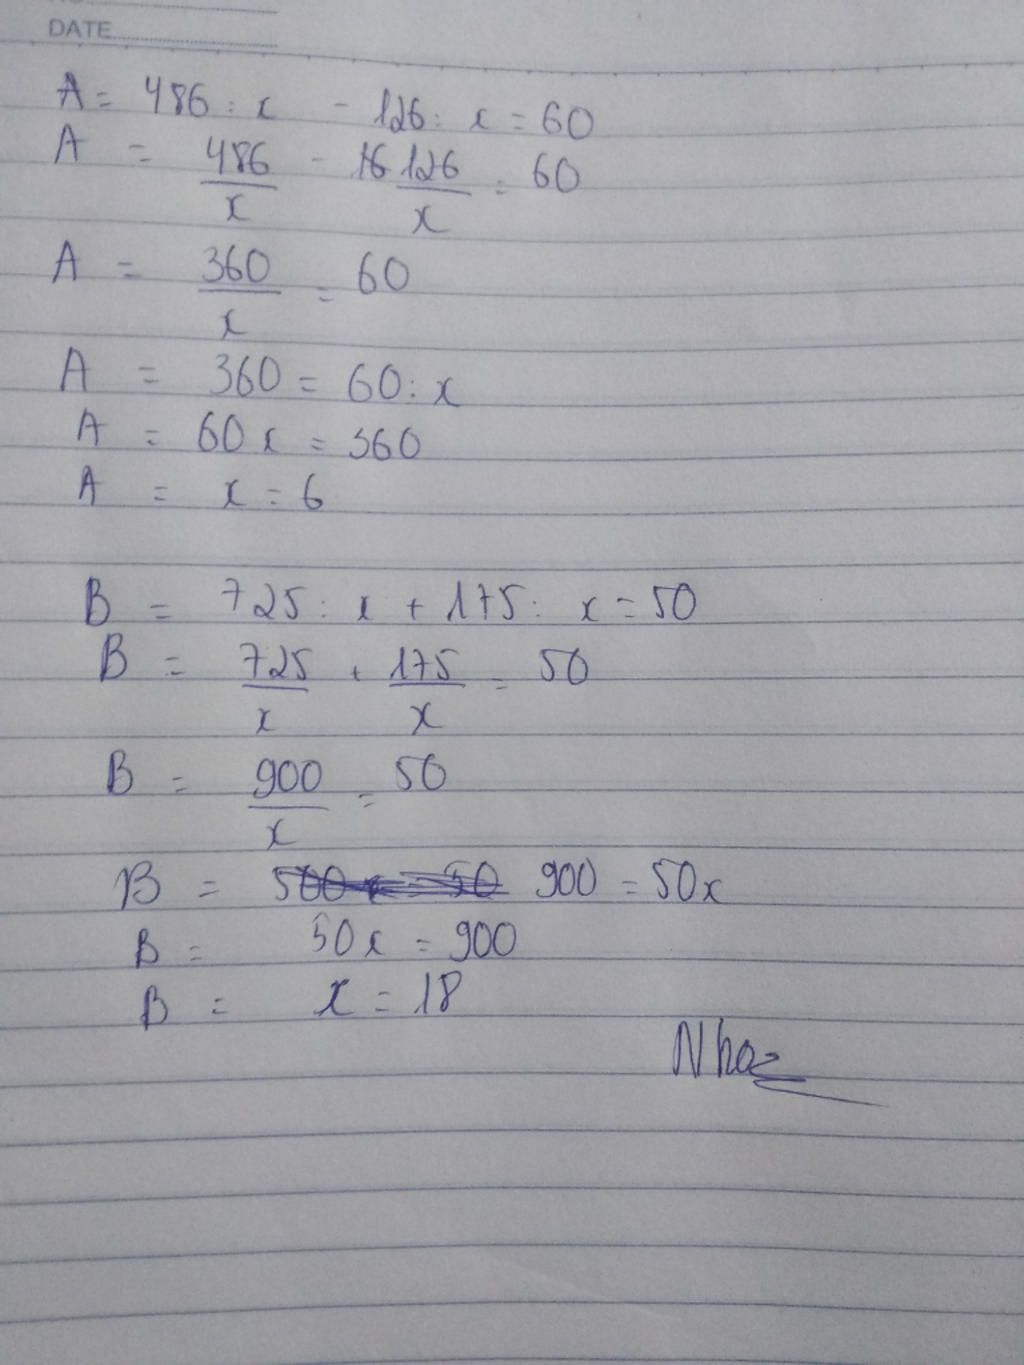 DATE
A = 486 : x - 126 : x = 60
A = 486/x - 16 126/x = 60
A = 360/x = 60
A = 360 = 60 : x
A = 60x = 360
A = x = 6
B = 725 : x + 175 : x = 50
B = 725/x + 175/x = 50
B = 900/x = 50
B = 900 = 50x
B = 50x = 900
B = x = 18